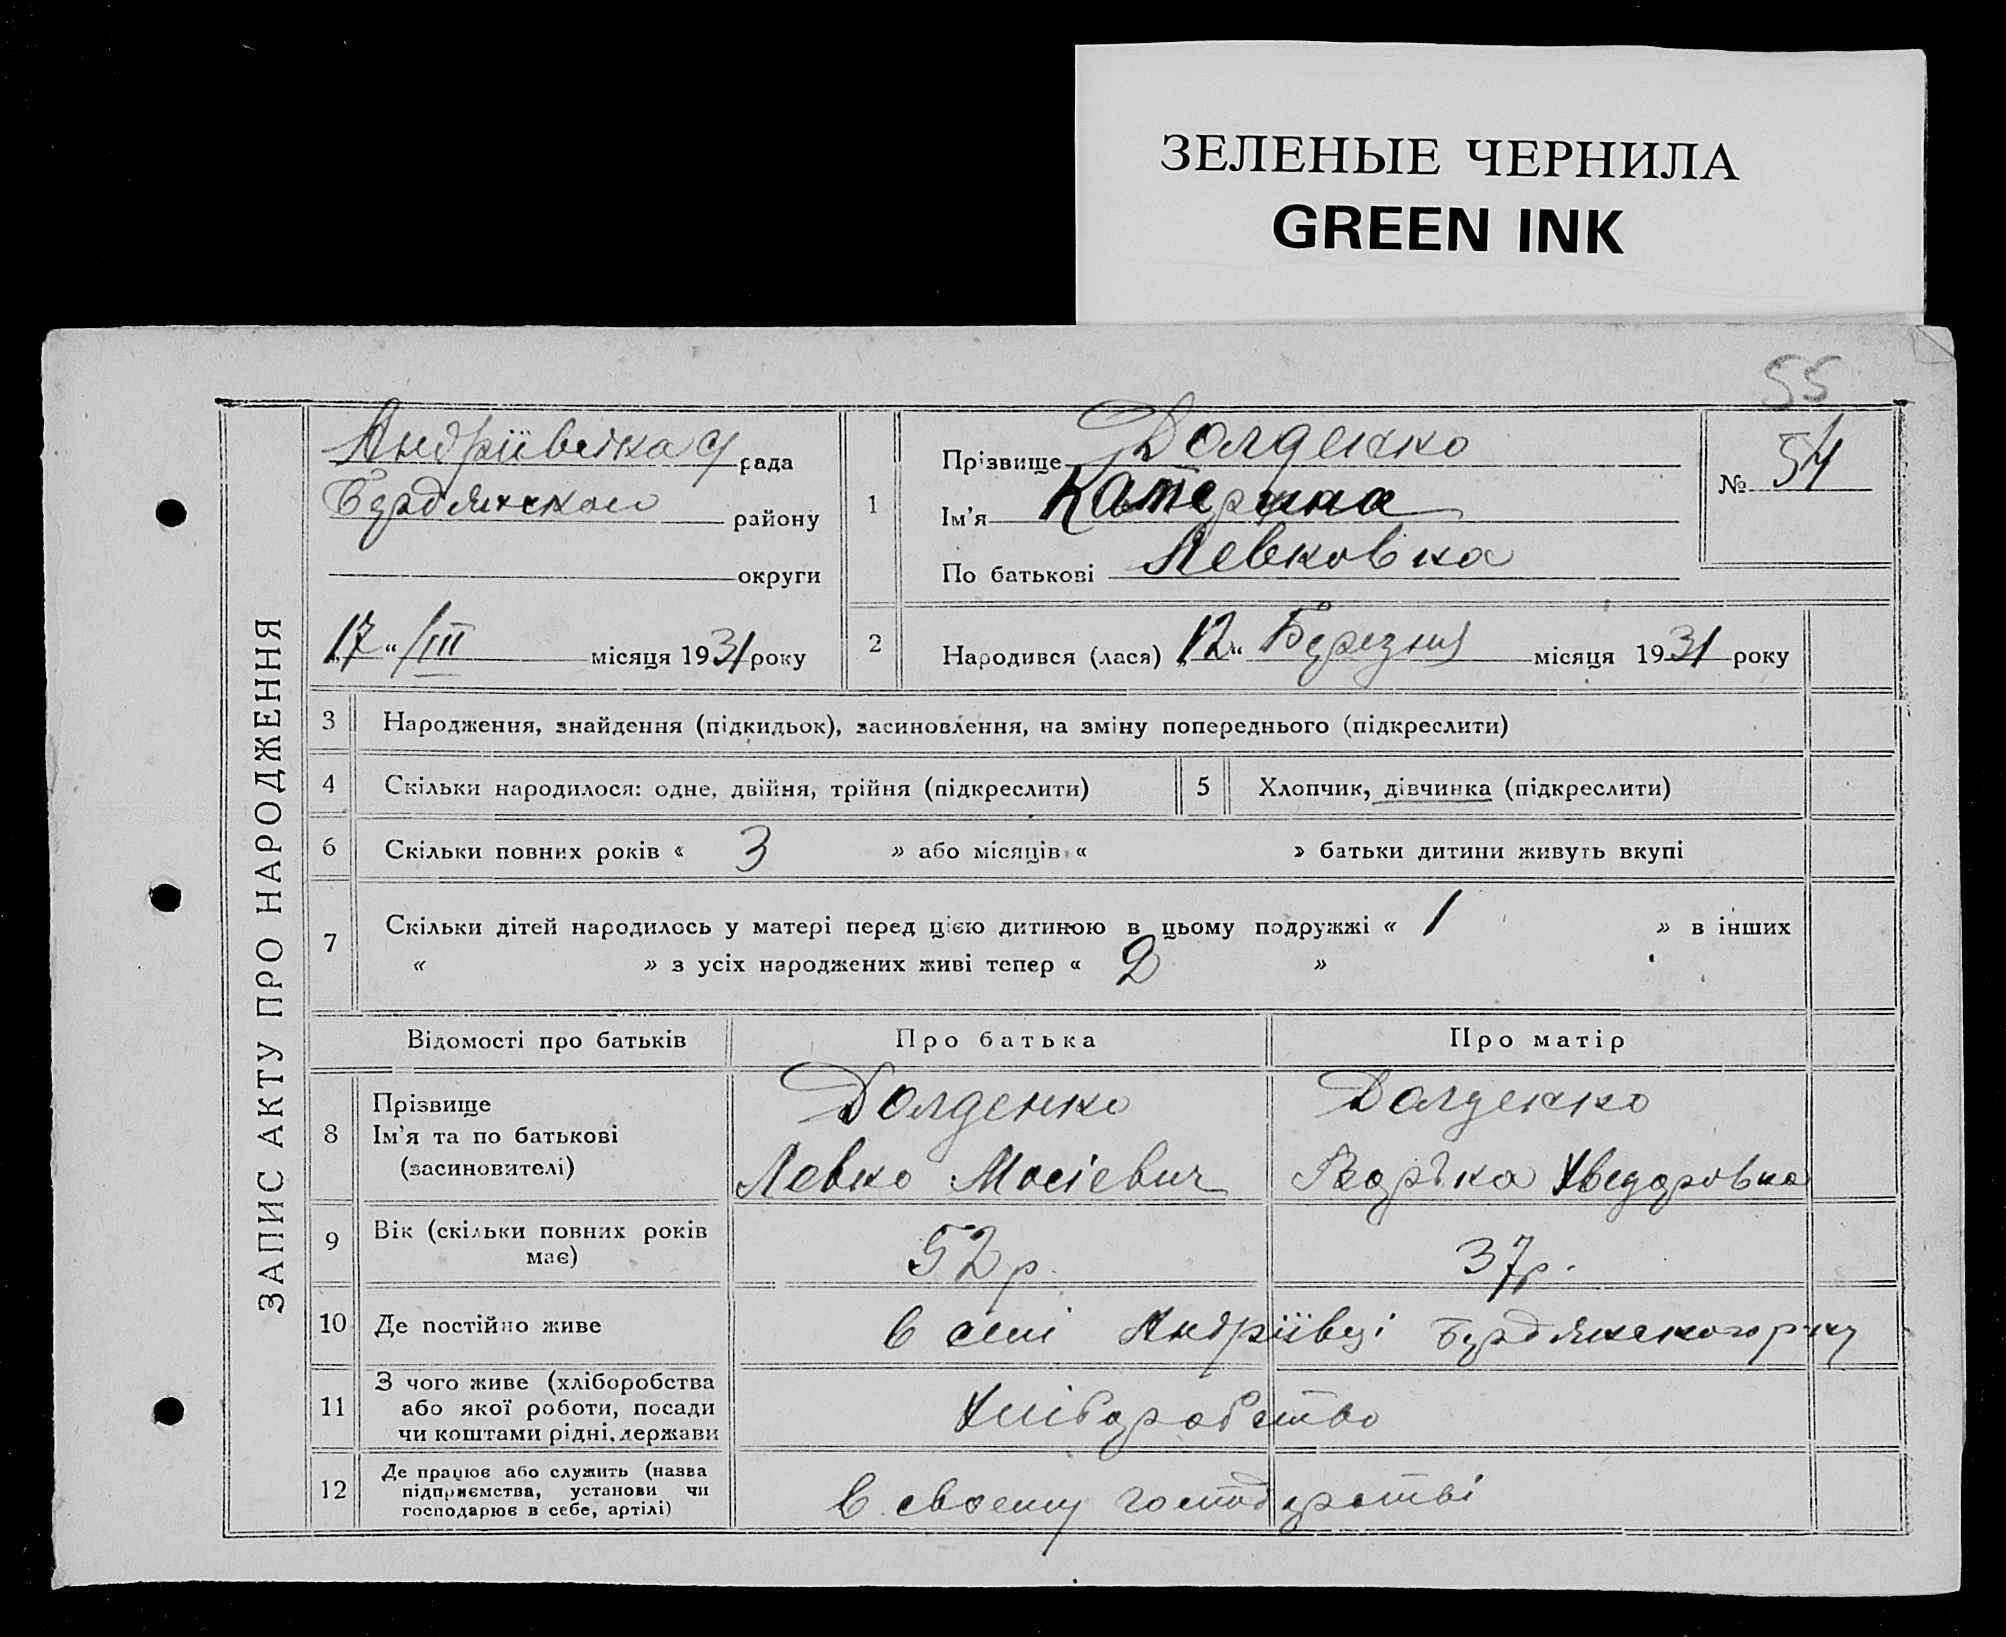 ЗЕЛЕНЫЕ ЧЕРНИЛА
GREEN INK
55
ЗАПИС АКТУ ПРО НАРОДЖЕННЯ
Андріївська рада
Бердянского району
округи
„17“ /III місяця 1931 року
1
Прізвище Долденко
Ім'я Катерина
По батькові Левковна
№ 54
2 Народився (лася) „12“ Березня місяця 1931 року
3 Народження, знайдення (підкидьок), засиновлення, на зміну попереднього (підкреслити)
4 Скільки народилося: одне, двійня, трійня (підкреслити) 5 Хлопчик, дівчинка (підкреслити)
6 Скільки повних років « 3 » або місяців « » батьки дитини живуть вкупі
7 Скільки дітей народилось у матері перед цією дитиною в цьому подружжі « 1 » в інших
« » з усіх народжених живі тепер « 2 »
Відомості про батьків Про батька Про матір
8 Прізвище
Ім'я та по батькові
(засиновителі)
Долденко
Левко Мосієвич
Долденко
Хведоровна
9 Вік (скільки повних років має) 52 р. 37 р.
10 Де постійно живе в селі Андріївці Бердянского р-ну
11 З чого живе (хліборобства
або якої роботи, посади
чи коштами рідні, держави
Хліборобство
12 Де працює або служить (назва
підприємства, установи чи
господарює в себе, артілі)
в своему господарстві